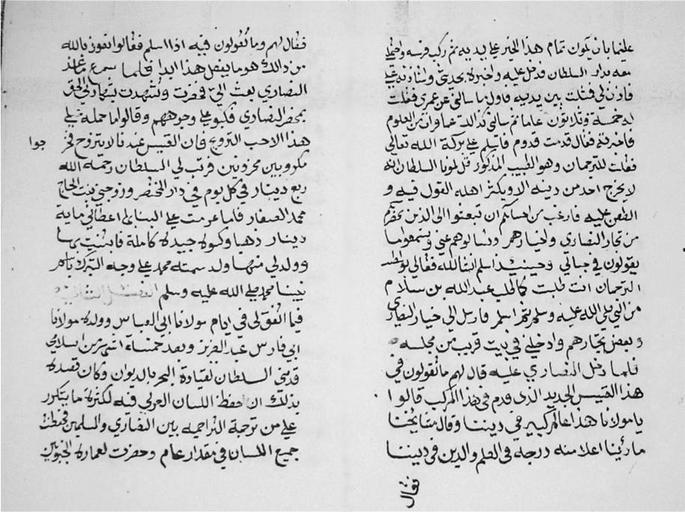 علينا بان يكون تمام هذا الخير على يديه ثم ركب فرسه وحملني
معه لدار السلطان فدخل عليه واخبره بحديثي وشاوره علي
فاذن لي فمثلت بين يديه فاول ما سالني عن عمري فقلت
له خمسة وثلاثون عاما ثم سالني كذلك عما قرات من العلوم
فاخبرته فقال قدمت قدوم فاسلم على بركة الله تعالى
فقلت للترجمان وهو الطبيب المذكور قل لمولانا السلطان انه
لا يخرج احد من دينه الا ويكثر اهله القول فيه و
الطعن عليه فارغب من احسانكم ان تبعثوا الى الذين بحضرتكم
من تجار النصارى واخيارهم وتسالوهم عني وتسمعوا ما
يقولون في جنابي وحينئذ اسلم ان شا الله فقال لي بواسطة
الترجمان انت طلبت كما طلب عبد الله بن سلام
من النبي صلى الله عليه وسلم ثم اسلم فارسل الى اخيار النصارى
وبعض تجارهم وادخلني في بيت قريب من مجلسه
فلما دخل النصارى عليه قال لهم ما تقولون في
هذا القسيس الجديد الذي قدم في هذا المركب قالوا
يا مولانا هذا عالم كبير في ديننا وقال مشايخنا
ما راينا اعلا منه درجة في العلم والدين في ديننا
فقال
فقال لهم وما تقولون فيه اذا اسلم فقالوا نعوذ بالله
من ذالك هو ما يفعل هذا ابدا فلما سمع ما عند
النصارى بعث الي فحضرت وتشهدت شهادة الحق
بمحضر النصارى فكبوا على وجوههم وقالوا ما حمله على
هذا الا حب التزويج فان القسيس عندنا لا يتزوج فخر
جوا
مكروبين محزونين فرتب لي السلطان رحمه الله
ربع دينار في كل يوم في دار المختص وزوجني بنت الحاج
محمد الصفار فلما عزمت على البنا بها اعطاني ماية
دينار ذهبا وكسوة جيدة كاملة فابنيت بها
وولد لي منها ولد سميته محمد على وجه التبرك باسم
نبينا محمد صلى الله عليه وسلم الفصل الثاني
فيما اتفق لي في ايام مولانا ابي العباس وولده مولانا
ابي فارس عبد العزيز وبعد خمسة اشهر من اسلامي
قدمني السلطان لقيادة البحر بالديوان وكان قصده
بذلك ان احفظ اللسان العربي فيه لكثرة ما يتكرر
علي من ترجمة التراجمة بين النصارى والمسلمين فحفظت
جميع اللسان في مقدار عام وحضرت لعمارة الجنويين